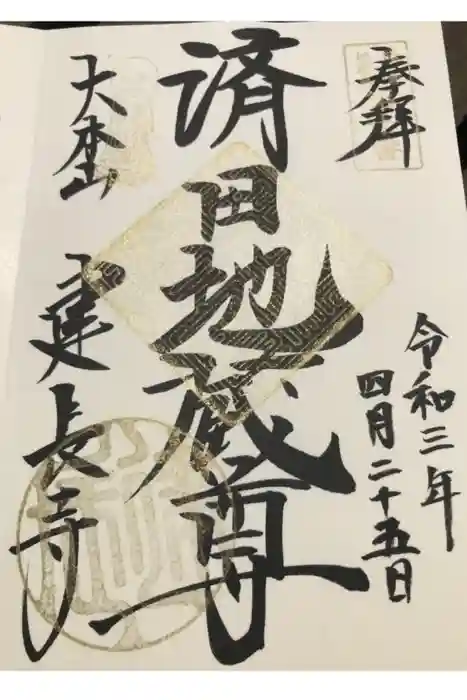 奉拝
令和三年
四月二十五日
済田地蔵尊
大本山
建長寺